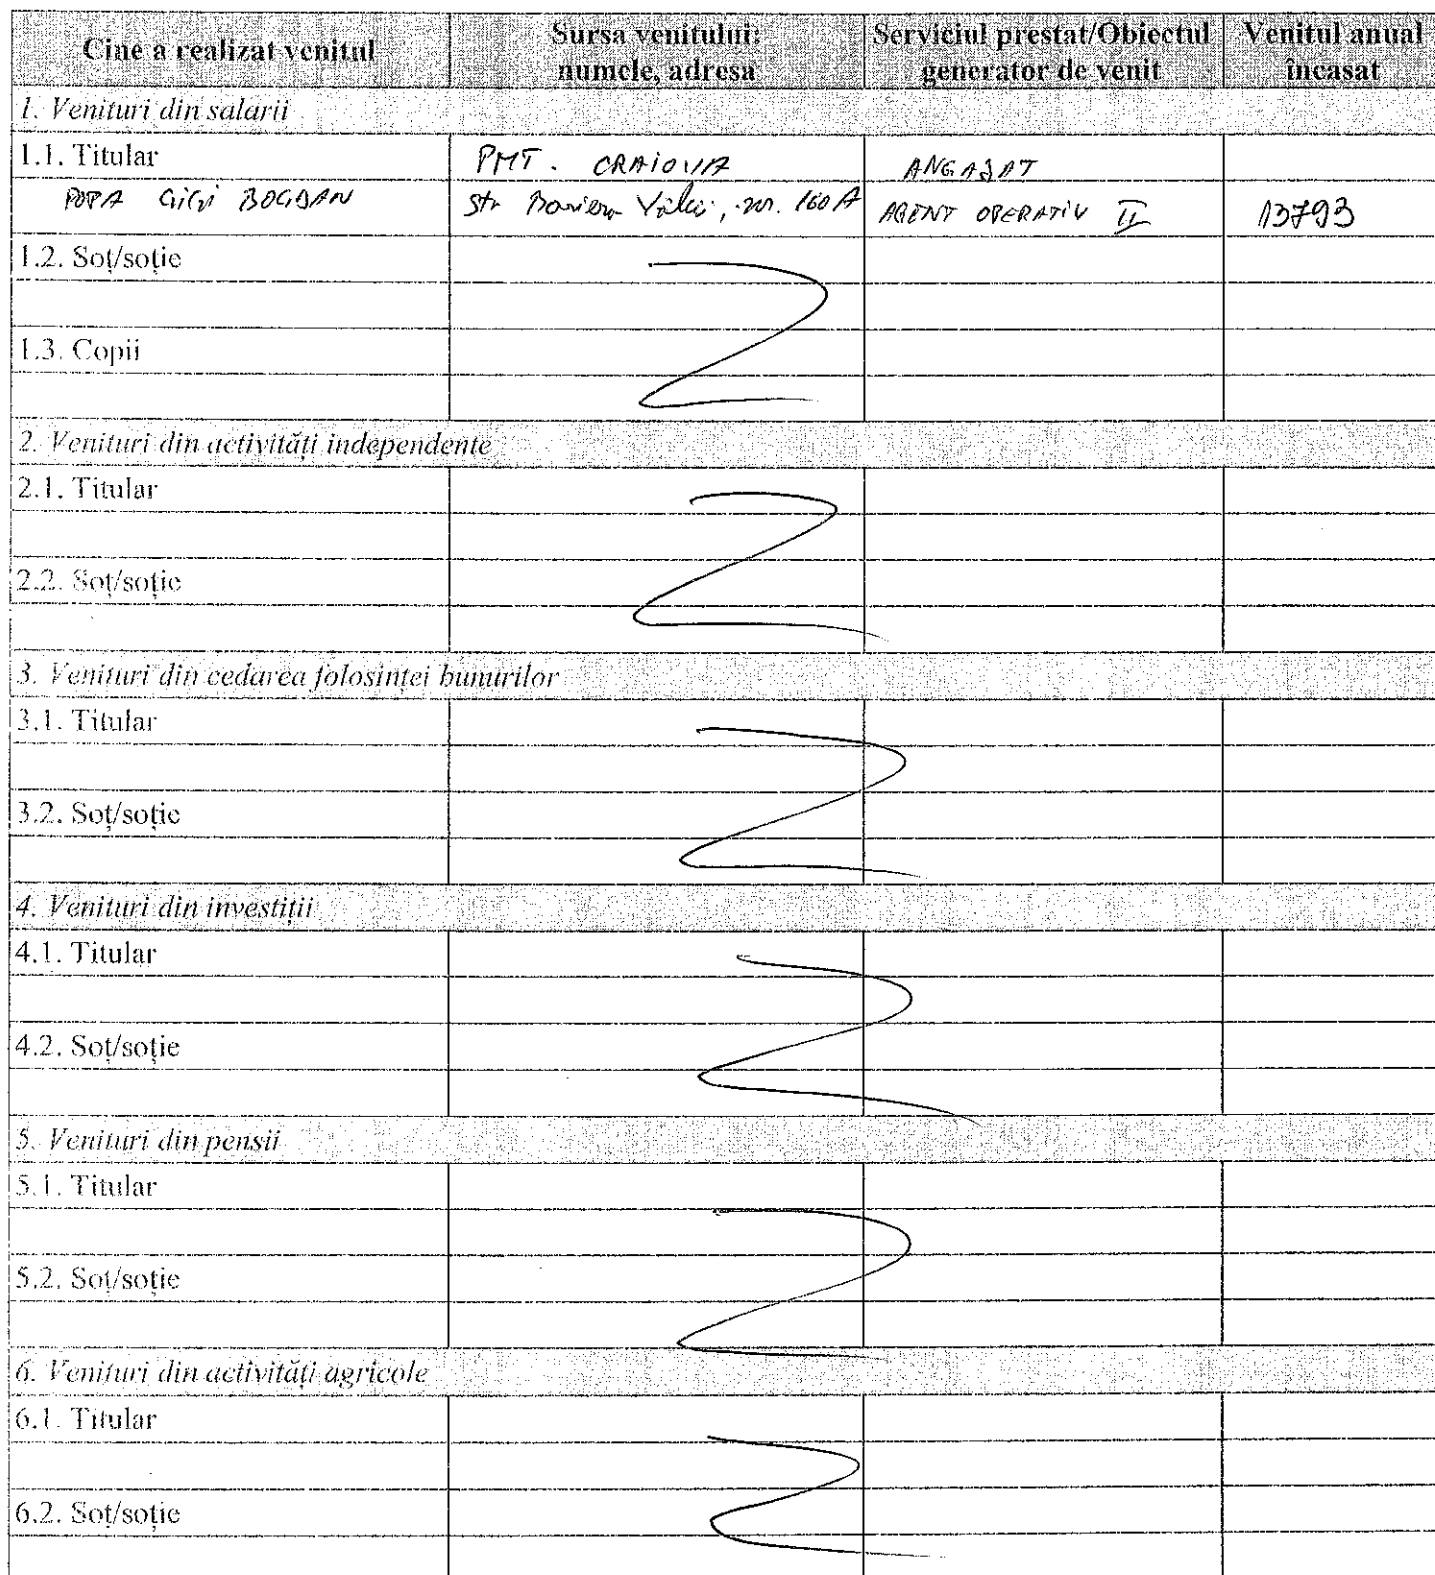 Cine a realizat venitul
Sursa venitului:
numele, adresa
Serviciul prestat/Obiectul
generator de venit
Venitul anual
încasat
1. Venituri din salarii
1.1. Titular
PMT. CRAIOVA
ANGAJAT
POPA GIGI BOGDAN
Str Bariera Vâlcii, nr. 160 A
AGENT OPERATIV II
13793
1.2. Soț/soție
1.3. Copii
2. Venituri din activități independente
2.1. Titular
2.2. Soț/soție
3. Venituri din cedarea folosinței bunurilor
3.1. Titular
3.2. Soț/soție
4. Venituri din investiții
4.1. Titular
4.2. Soț/soție
5. Venituri din pensii
5.1. Titular
5.2. Soț/soție
6. Venituri din activități agricole
6.1. Titular
6.2. Soț/soție